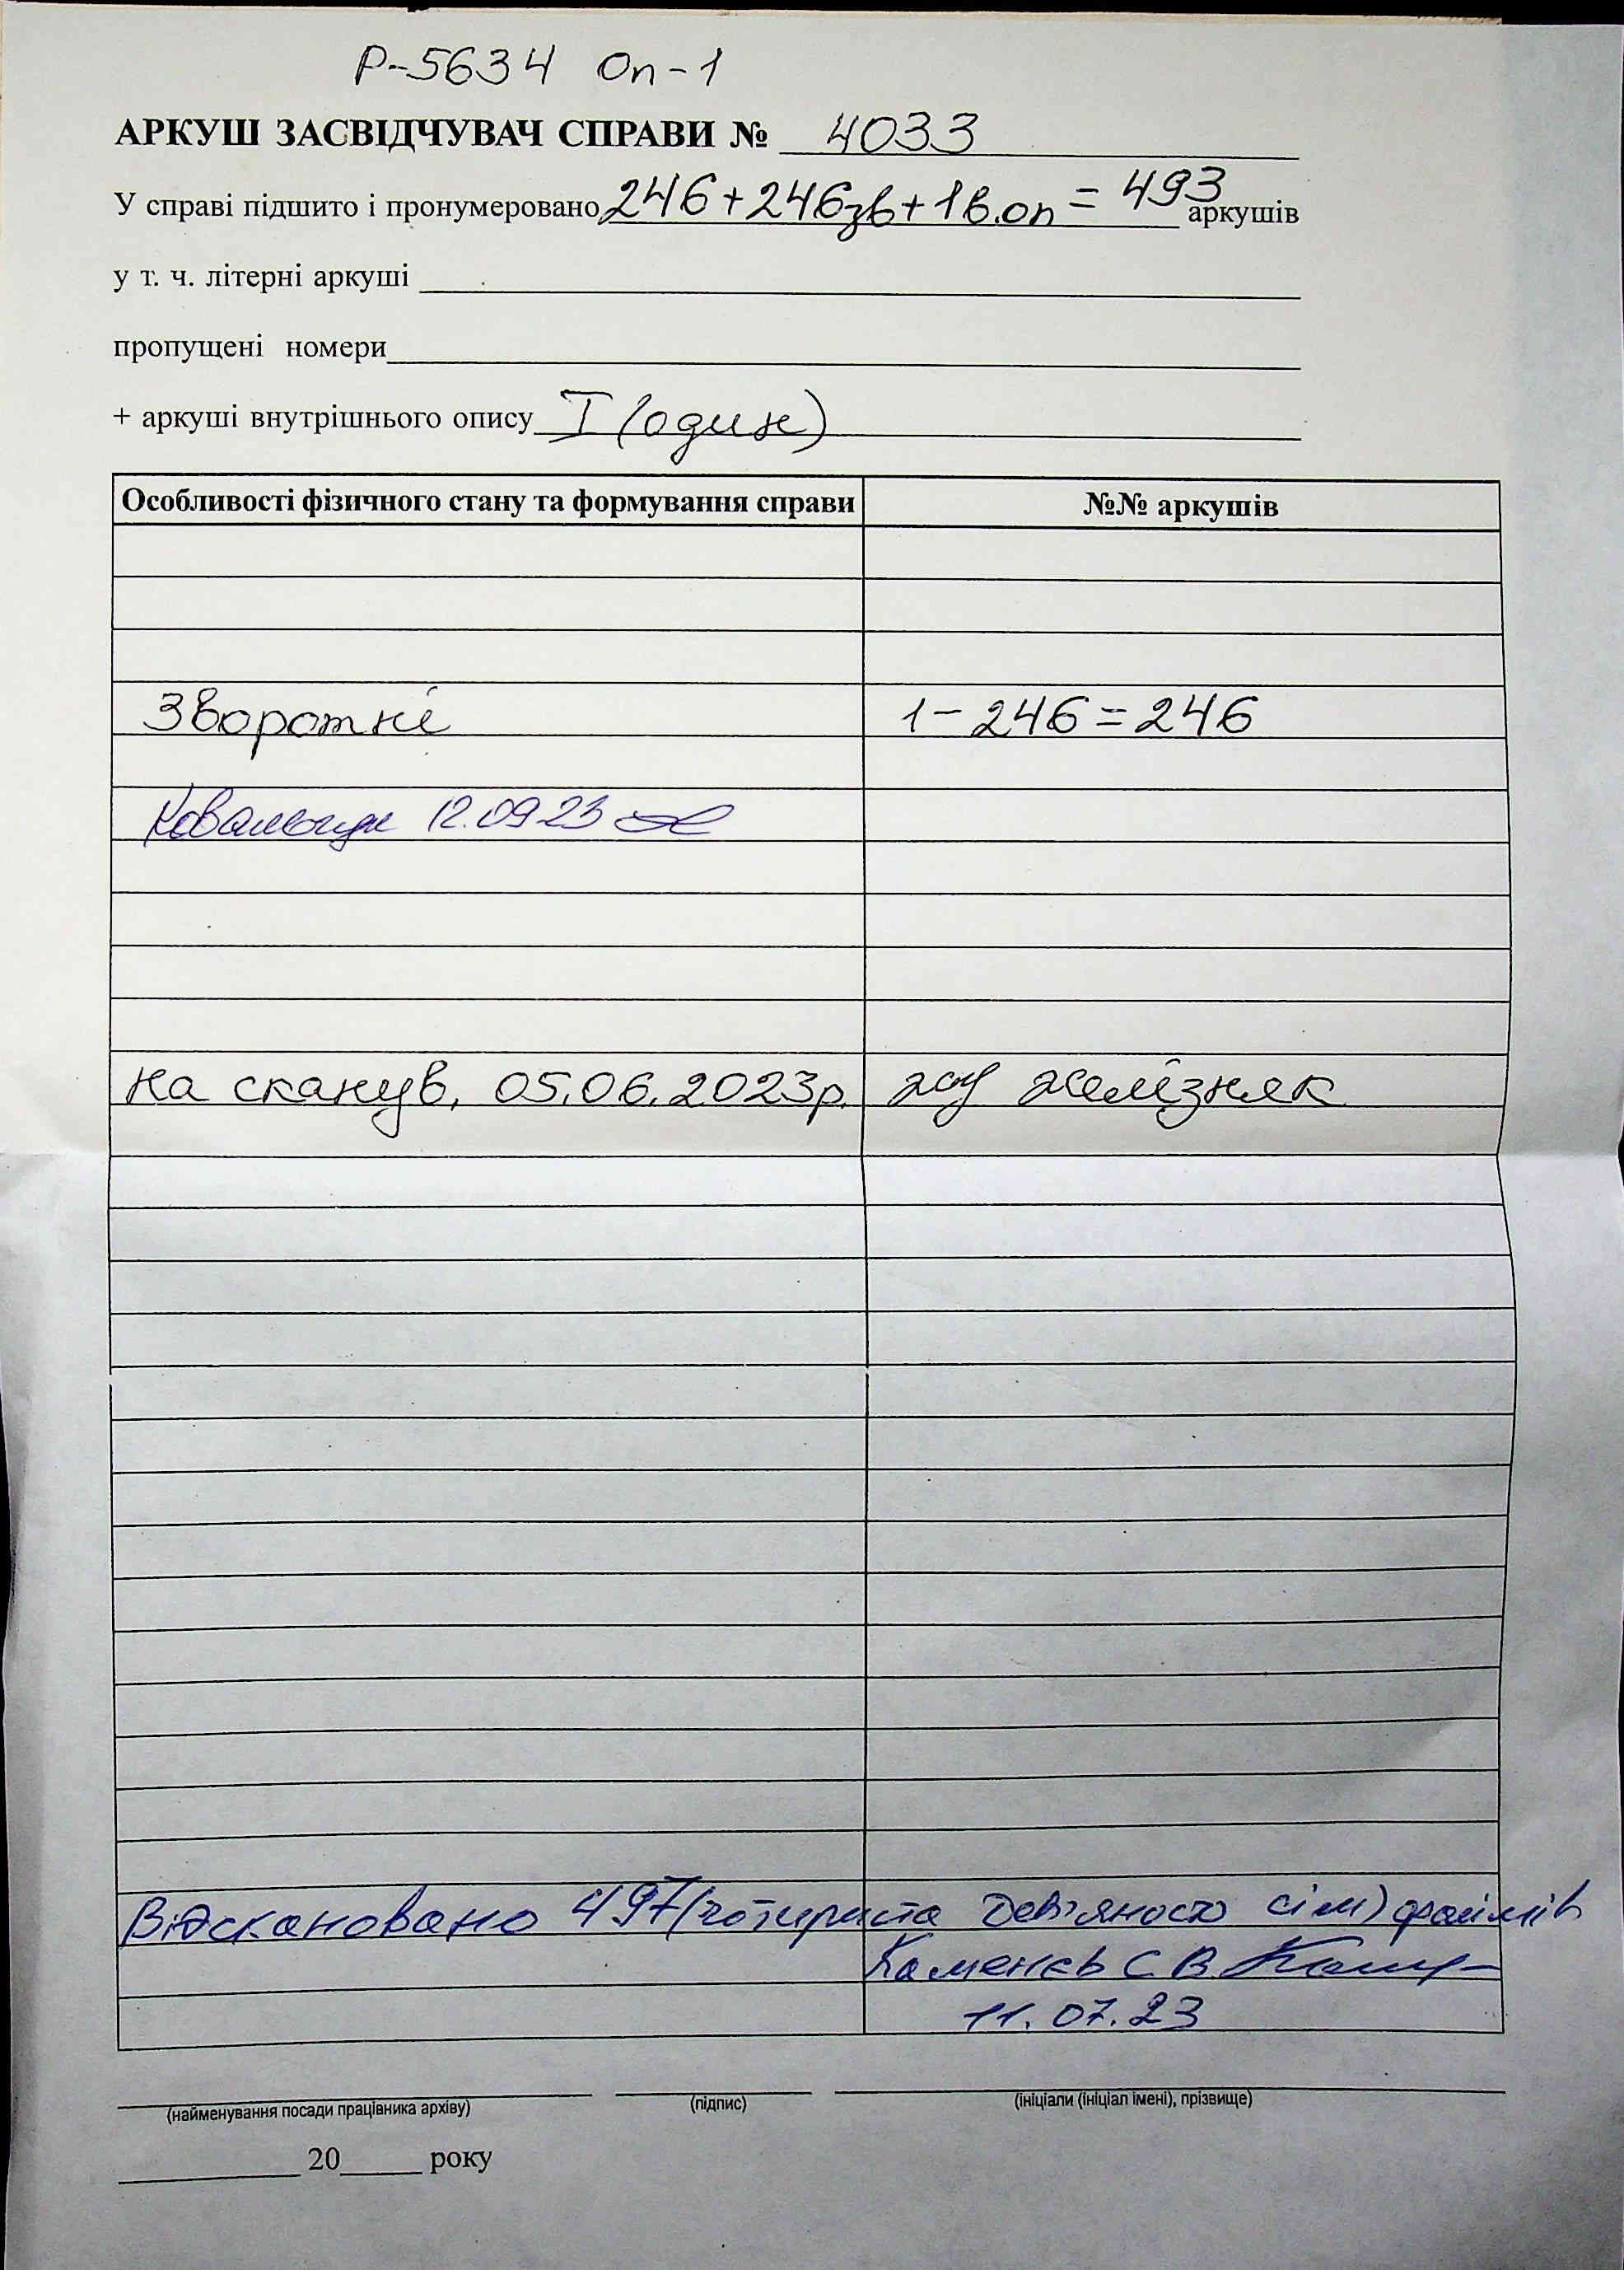 Р-5634 Оп-1
АРКУШ ЗАСВІДЧУВАЧ СПРАВИ № 4033
У справі підшито і пронумеровано 246+246зв+1в.оп = 493 аркушів
у т. ч. літерні аркуші
пропущені номери
+ аркуші внутрішнього опису I (один)
Особливості фізичного стану та формування справи №№ аркушів
Зворотні 1-246=246
12.09 23
на сканув. 05.06.2023р. Желізняк
Відскановано 497 (чотириста дев'яносто сім) файлів
Каменєв С В
11.07.23
(найменування посади працівника архіву) (підпис) (ініціали (ініціал імені), прізвище)
20 року